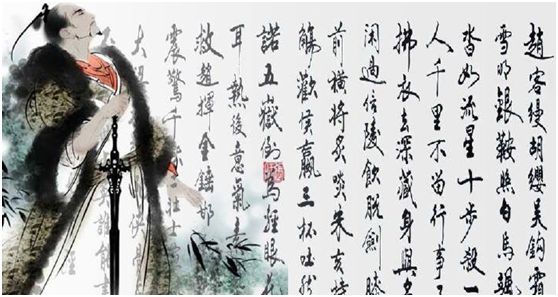 趙客縵胡纓吳鉤霜
雪明銀鞍照白馬颯
沓如流星十步殺一
人千里不留行事了
拂衣去深藏身與名
閑過信陵飲脫劍膝
前橫將炙啖朱亥持
觴勸侯嬴三杯吐然
諾五嶽倒為輕眼花
耳熱後意氣素
救趙揮金錘邯
震驚千秋二壯士
大梁